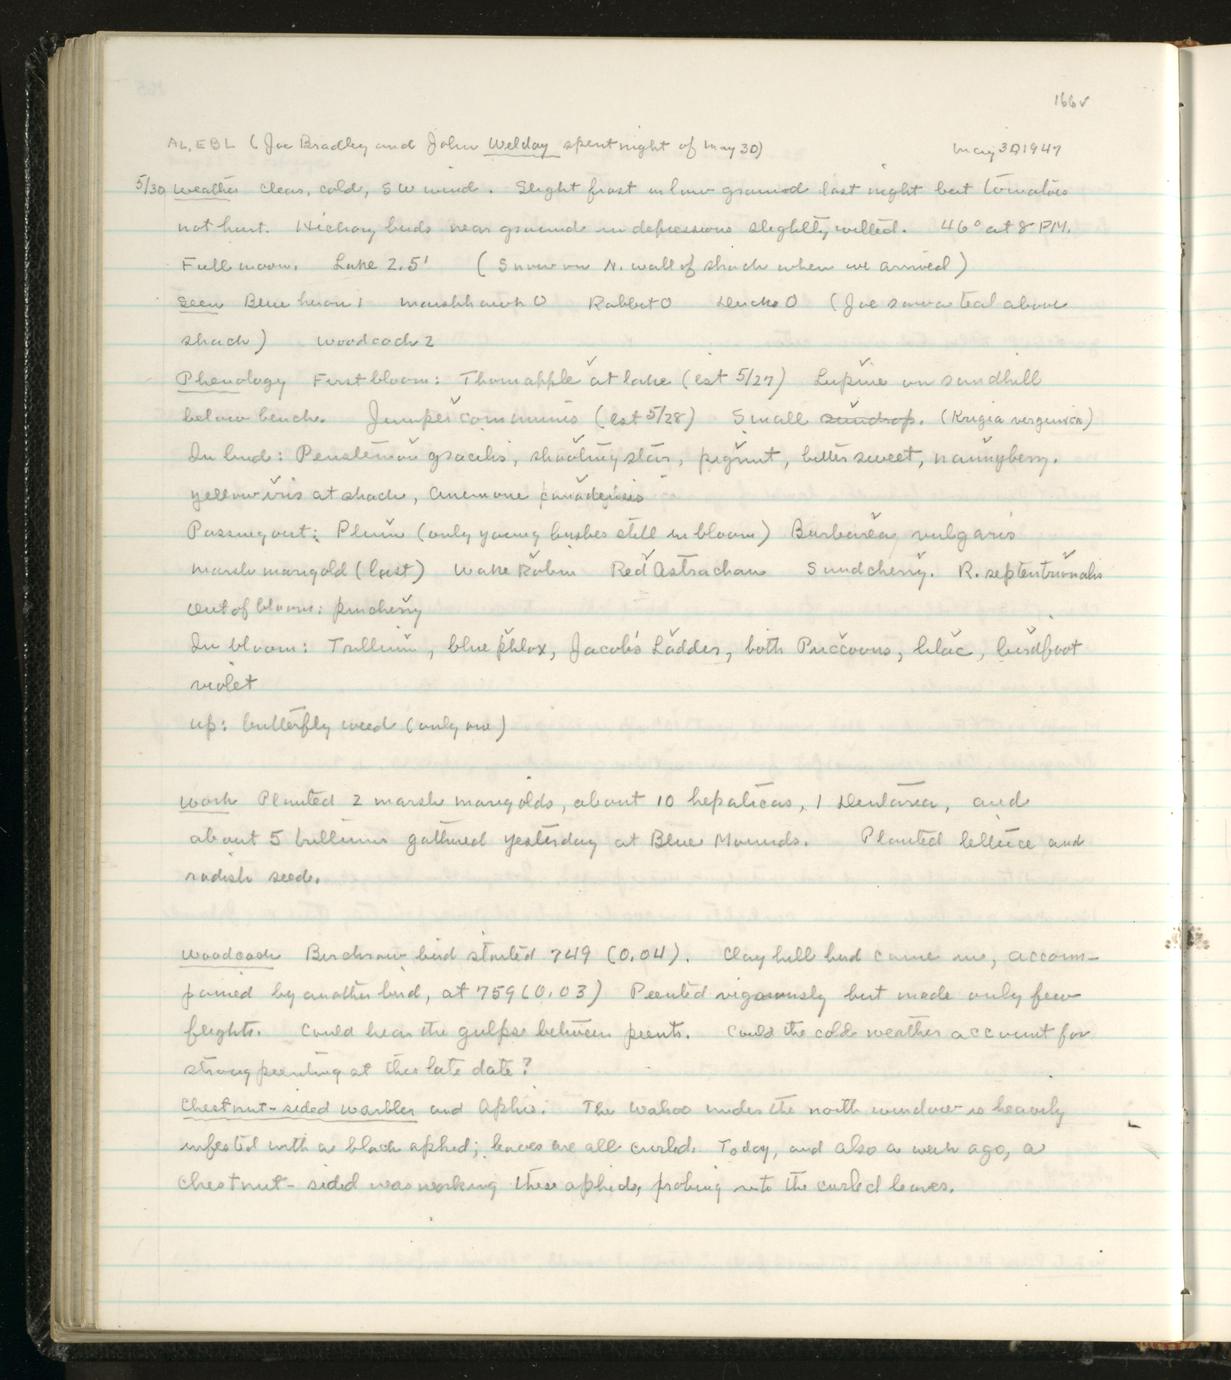 166v
AL, EBL (Joe Bradley and John Welday spent night of May 30) May 30 1947
5/30 Weather clear, cold, SW wind. Slight frost in low ground last night but tomatoes
not hurt. Hickory buds near ground in depressions slightly wilted. 46° at 8 PM.
Full moon. Lake 2.5' (Snow on N. wall of shack when we arrived)
Seen Blue heron 1 Marsh hawk 0 Rabbit 0 Ducks 0 (Joe saw a teal above
shack) Woodcock 2
Phenology First bloom: Thornapple at lake (est 5/27) Lupine on sandhill
below bench. Juniper communis (est 5/28) Small sundrop. (Krigia verginica)
In bud: Penstemon gracilis, shooting star, pignut, bittersweet, nannyberry.
yellow iris at shack, Anemone canadensis
Passing out: Plum (only young bushes still in bloom) Barbarea vulgaris
marsh marigold (last) Wake Robin Red Astrachan Sandcherry. R. septentrionalis
Out of bloom: pincherry
In bloom: Trillium, blue phlox, Jacob's Ladder, both Puccoons, lilac, birdfoot
violet
Up: butterfly weed (only one)
Work Planted 2 marsh marigolds, about 10 hepaticas, 1 Dentaria, and
about 5 trilliums gathered yesterday at Blue Mounds. Planted lettuce and
radish seed.
Woodcock Birchrow bird started 749 (0.04). Clay hill bird came in, accom-
panied by another bird, at 759 (0.03) Peented vigorously but made only few
flights. Could hear the gulps between peents. Could the cold weather account for
strong peenting at this late date?
Chestnut-sided warbler and Aphis. The Wahoo under the north window is heavily
infested with a black aphid; leaves are all curled. Today, and also a week ago, a
chestnut-sided was working these aphids, probing into the curled leaves.